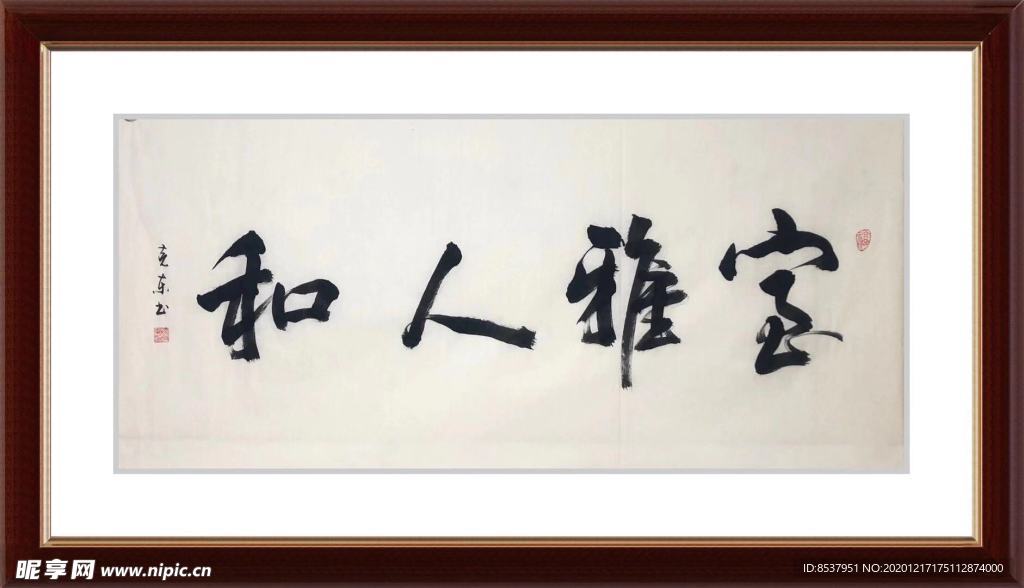 室雅人和
克东书
昵享网 www.nipic.cn
ID:8537951 NO:20201217175112874000